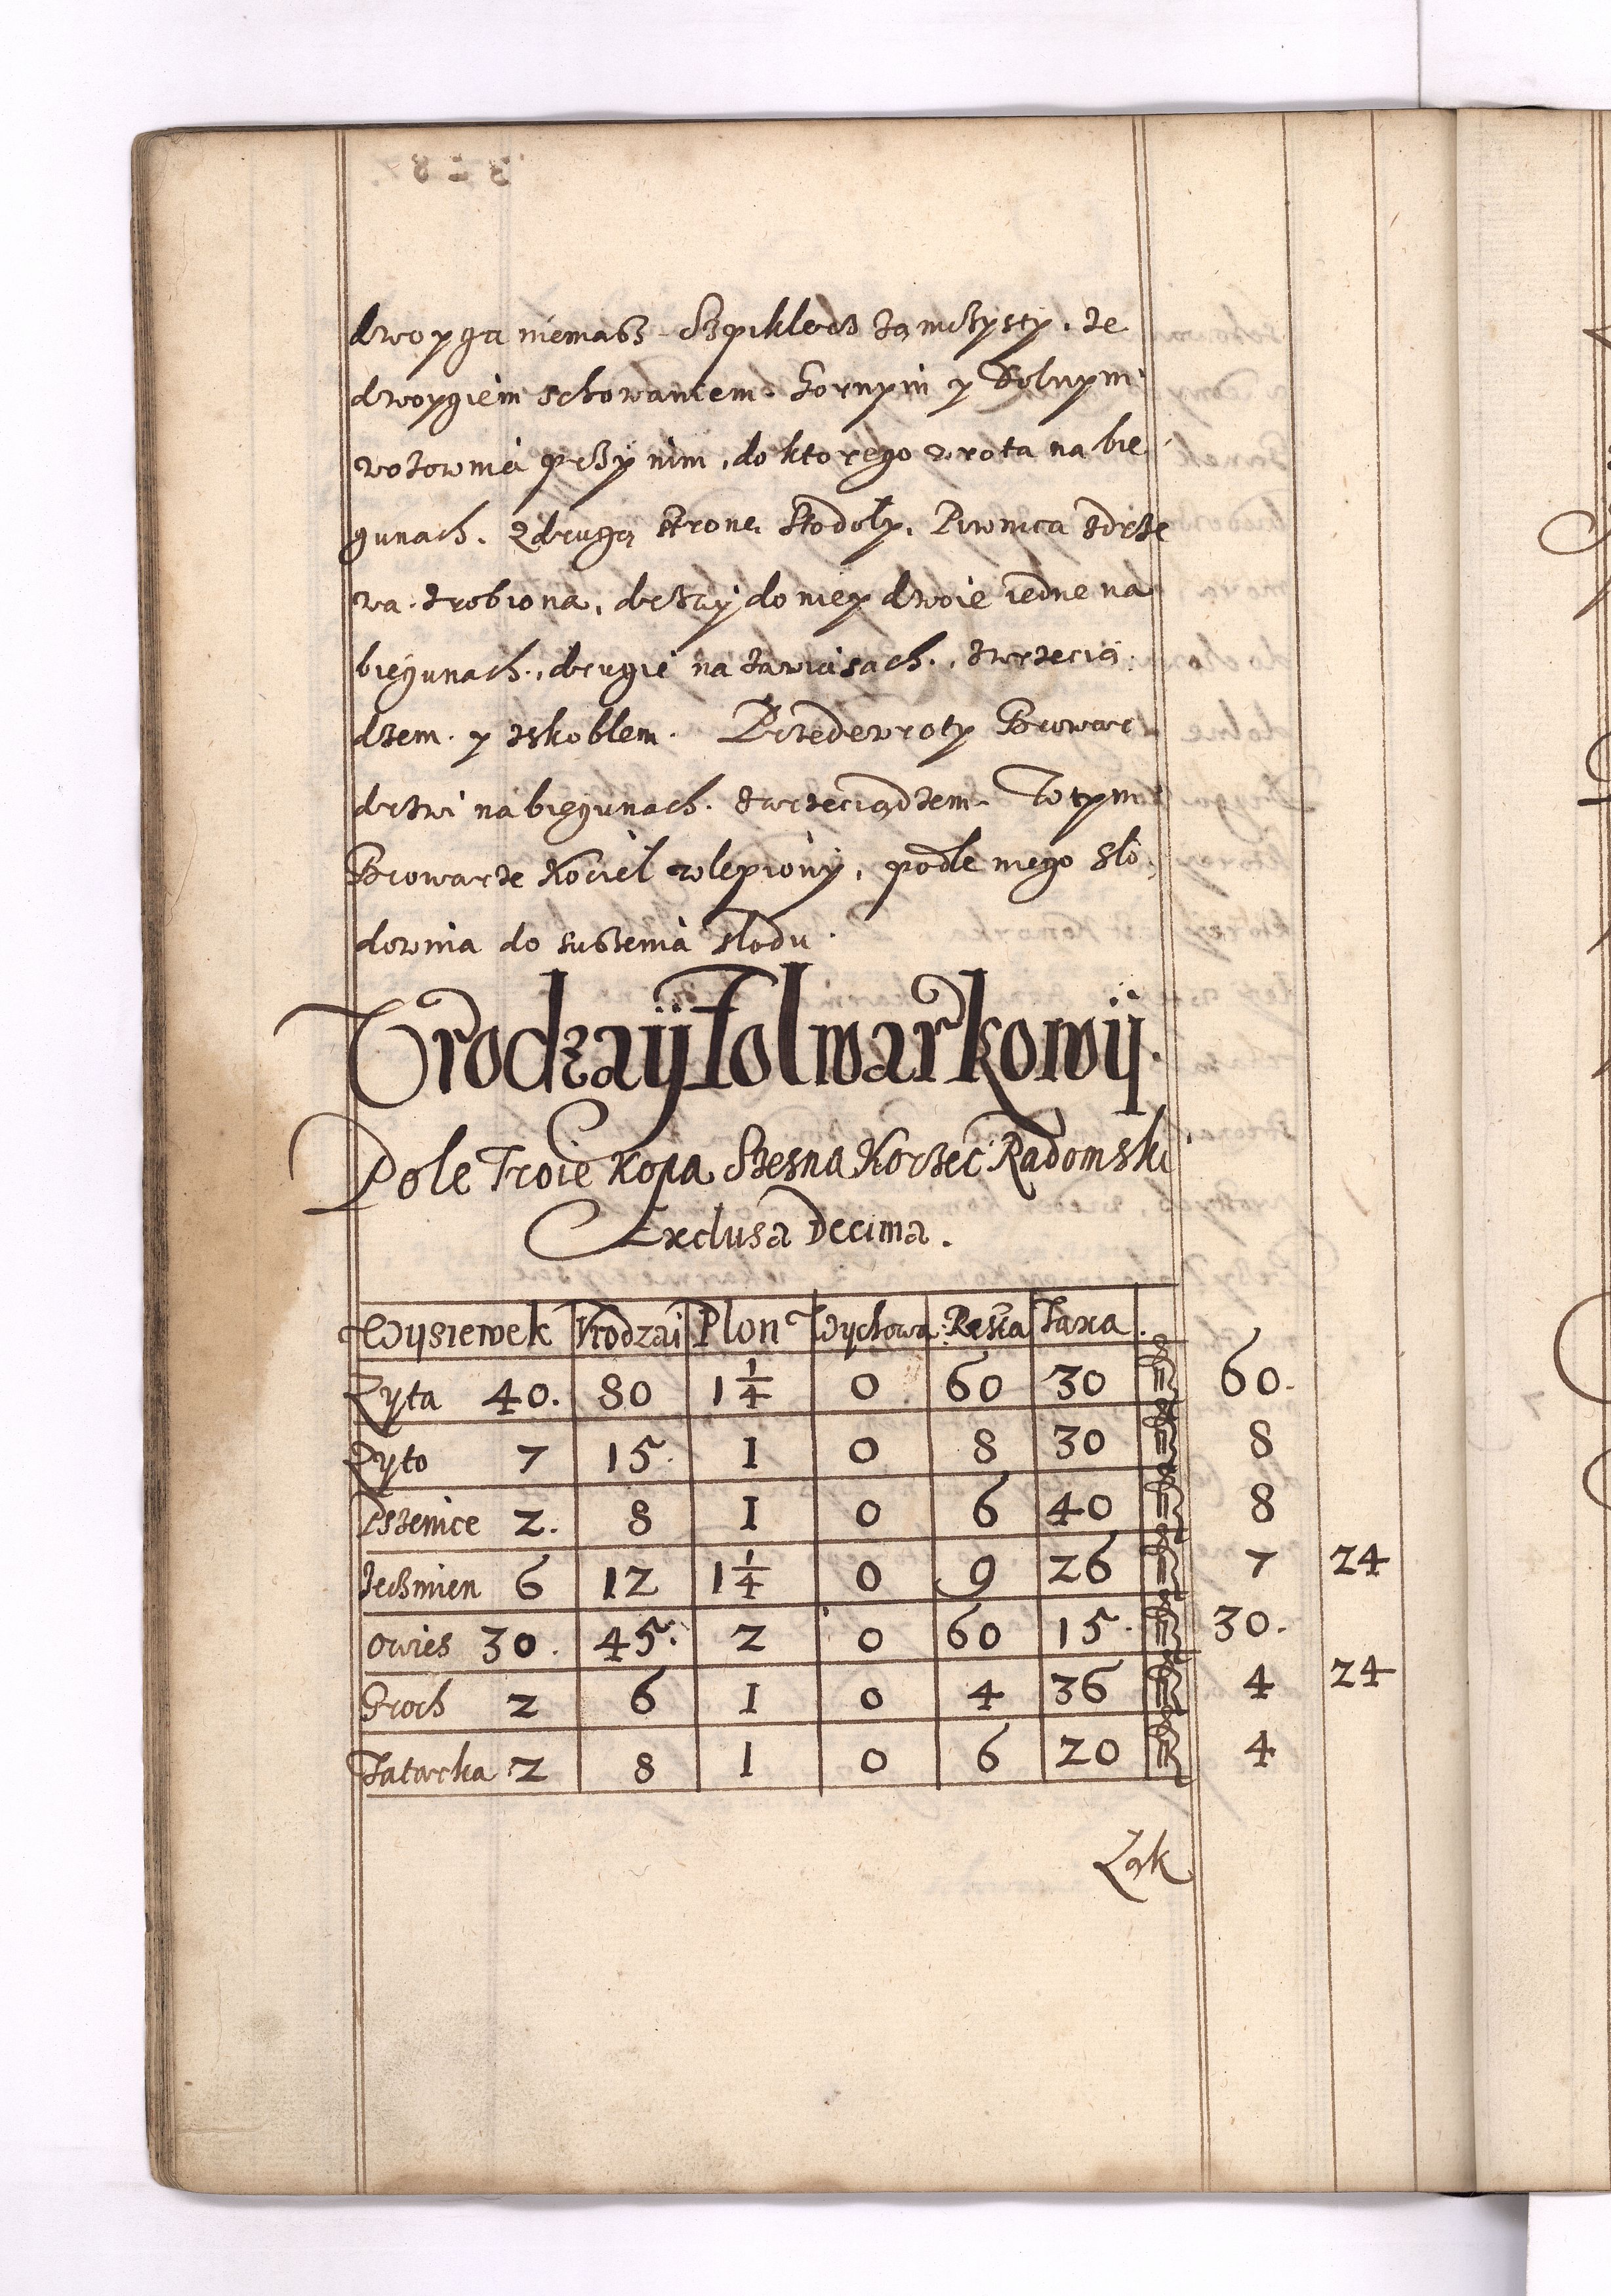 dwoyga niemasz. Szpiklerz zamczysty. ze
dwoygiem schowaniem. Gornym y Dolnym
wozownia przy nim, do ktorego wrota na bie
gunach. z drugą stronę Stodoły, Piwnica z drze
wa zrobiona, drzwy do niey dwoie iedne na
biegunach, drugie na zawiasach. z wrzecią
dzem. y zskoblem. Przede wroty Browar
drzwi na biegunach. z wrzeciądzem. W tym
Browarze Kocieł wlepiony, podle niego Sło
downia do suszenia słodu.
Vrodzayÿ folwarkowÿ.
Pole Troie Kopa Szesna Korzec Radomski
Exclusa Decima.
Wysiewek Vrodzai Plon Wychowa: Resta Taxa.
Zyta 40. 80 1 1/4 0 60 30 fl 60.
Zyto 7 15. 1 0 8 30 fl 8
Pszenice 2. 8 1 0 6 40 fl 8
Jeczmien 6 12 1 1/4 0 9 26 fl 7 24
Owies 30. 45. 2 0 60 15. fl 30.
Groch 2 6 1 0 4 36 fl 4 24
Tatarka 2 8 1 0 6 20 fl 4
Ząk